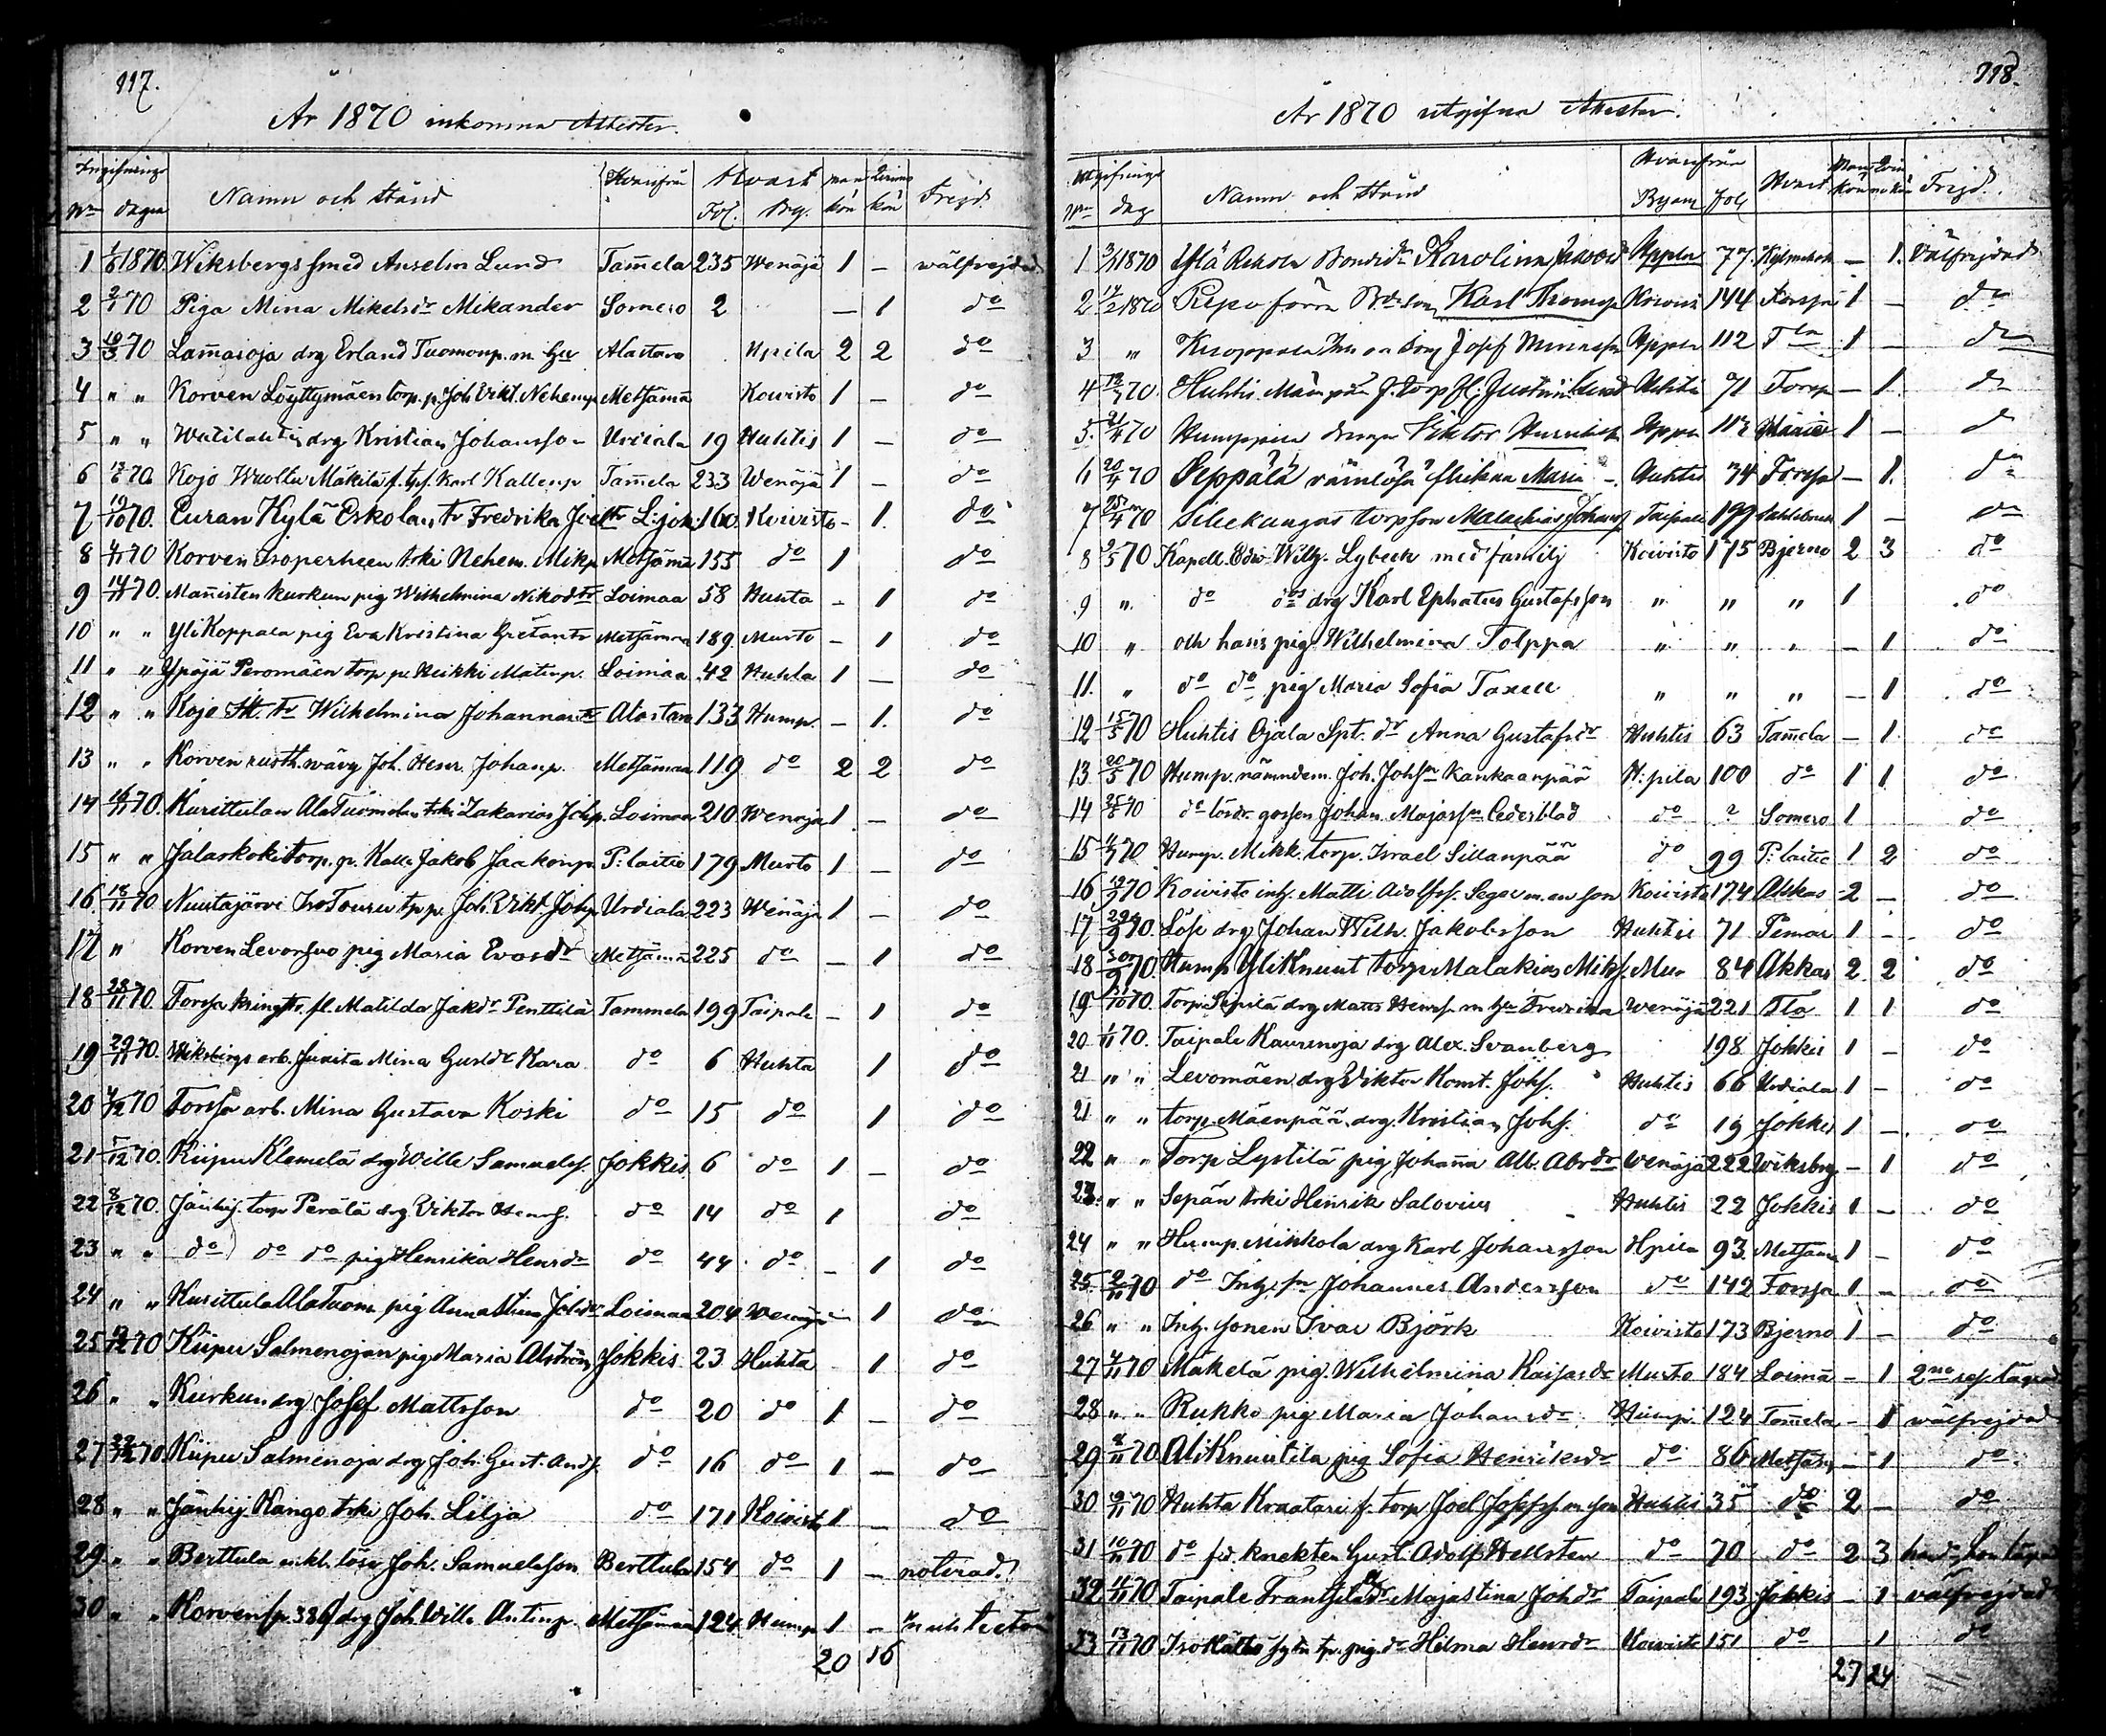 117.
År 1870 inkomna Attester.
Utgifnings Hvarifrån Hvart man kön Qvinns kön Frejd.
Nro dagen Namn och stånd Fol. By.
1 1/1 1870 Wiksbergs smed Anselm Lund Tam̄ela 235 Wenäjä 1 – wälfrejdad
2 2/1 70 Piga Mina Mikelsdr Mikander Somero 2 — 1 do
3 10/3 70 Lam̄aioja drg Erland Tuomonp. m. Hu Alastaro Hpila 2 2 do
4 " " Korven Löyttymäen torp. p. Joh. Vikt. Nehemp Metsämā Koivisto 1 – do
5 " " drg Kristian Johansson Urdiala 19 Huhtis 1 – do
6 70 Kojo Wuoltu Mäkilä f. tpf. Karl Kallenp Tam̄ela 233 Wenäjä 1 – do
7 19/10 70. Euran Kylä Eskolan tr Fredrika Joeltr L:joki 160 Koivisto – 1. do
8 4/11 70 Korven Isoperheen trki Nehem. Mikp. Metsämā 155 do 1 do
9 14/11 70. Man̄isten kurkun pig Wilhelmina Nikodtr Loimaa 58 Huhta – 1 do
10 " " YliKoppala pig Eva Kristina Gretantr Metsämaa 189 Murto – 1 do
11 " " Ypäjä Peromäen torp. p. Heikki Matinp. Loimaa 42 Huhta 1 — do
12 " " Kojo Itt. tr Wilhelmina Johannantr Alastaro 133 Hump. – 1. do
13 " " Korven rusth. wäry Joh. Henr. Johanp. Metsämaa 119 do 2 2 do
14 16/11 70. Kurittulan AlaTuomolan trki Zakarias Johp. Loimaa 210 Wenäja 1 – do
15 " " Jalaskoki torp. p. Kalle Jakob Jaakonp. P:laitio 179 Murto 1 – do
16. 18/11 70 Nuutajärvi IsoTouru tp p. Joh. Vikt. Johp. Urdiala 223 Wenäja 1 – do
17 " Korven Levonsuo pig Maria Evasdr Metsämā 225 do – 1 do
18 28/11 70. Forssa fl. Matilda Jakdr Penttilä Tammela 199 Taipale – 1 do
19 29/11 70. Wiksbergs arb. Mina Gustdr Kara do 6 Huhta 1 do
20 4/12 70 Forssa arb. Mina Gustava Koski do 15 do 1 do
21 5/12 70. Kiipu Klemelä drg Wille Samuelsf. Jokkis 6 do 1 – do
22 8/12 70. Jänhij. torp Perälä drg Viktor Henrs. do 14 do 1 do
23 " " do do do pig Henrika Henrdr do 44 do – 1 do
24 " " Kurittula AlaTuom. pig AnnaStina Johdr Loimaa 204 Wenäja – 1 do
25 70 Kiipu Salmenojan pig Maria Alström Jokkis 23 Huhta 1 do
26 " " Kurkun drg Josef Mattsson do 20 do 1 – do
27 22/12 70. Kiipu Salmenoja drg Joh. Gust. Ands. do 16 do 1 – do
28 " " Jänhij Kango trki Joh. Lilja do 171 Koivisto 1 – do
29. " " Berttula inkl. lösa Joh. Samuelsson Berttula 154 do 1 – noterad.
30 " " Korven (p. 386) drg Joh Wille Antinp. Metsämaa 124 Hump 1 –
20 16
118.
År 1870 utgifna Attester.
Utgifnings Hvarifrån Hvart Mankön Qvinnokön Frejd.
Nro dag Namn och stånd Byam Fol
1 3/1 1870 Yllä Bondedr Karolina 77 – 1. Välfrejdad
2 17/2 1870 Repo förra Karl Koivisto 144 Forssa 1 – do
3 " Josef 112 Tla 1 – do
4 70. Huhtis Mäenpää f. torp fl. Justina Lund Huhtis 71 Forssa – 1. do
5. 21/4 70 Humppila Viktor 113 1 – do
6 20/4 70 Seppälä Maria – Huhtis 34 Forssa – 1. do
7 25/4 70 Silekangas torpson Malachias Johansf Taipale 199 1 – do
8 2/5 70 Kapell. Edw. Wilh. Lybeck med familj Koivisto 175 Bjerno 2 3 do
9 " do dos drg Karl Ephatus Gustafsson " " " 1 do
10 " och hans pig Wilhelmina Tolppa " " " – 1 do
11. " do do pig Maria Sofia Taxell " " " – 1 do
12 15/5 70 Huhtis Ojala Spt. dr Anna Gustafsdr Huhtis 63 Tam̄ela – 1 do
13 20/5 70 Hump. nämndem. Joh. Johsn Kankaanpää H:pila 100 do 1 1 do
14 25/5 70 do lösdr gossen Johan Majassn Cederblad do ? Somero 1 do
15 70 Hump. Mikk. torp. Israel Sillanpää do 99 P:laitio 1 2 do
16 19/9 70 Koivisto inh. Matti Adolfsf. Seger m. en son Koivisto 174 Akkas 2 – do
17 29/9 70. Löfe drg Johan Wilh. Jakobsson Huhtis 71 Pemar 1 – do
18 30/9 70. Hump YliKnuut torp. Malakias Miks. Mur 84 Akkas 2 2 do
19 70. Torp. Sipilä drg Matts Henrs. m. Hu Fredrika Wenäjä 221 Tla 1 1 do
20 1/11 70. Taipale Kaurenoja drg Alex. Svanberg 198 Jokkis 1 – do
21 " " Levomäen drg Viktor Konst. Johs. Huhtis 66 Urdiala 1 – do
21 " " torp. Mäenpää. drg. Kristian Johs. do 19 Jokkis 1 – do
22 " " Torp Lystilä pig Johan̄a Alb. Abrdr Wenäjä 222 Wiksbrg – 1 do
23. " " Sepän trki Henrik Salovius Huhtis 22 Jokkis 1 – do
24 " " Hump. Mikkola drg Karl Johansson Hpila 93. Metsäma 1 – do
25 2/11 70 do Inhs. sn Johannes Andersson do 142 Forssa 1 – do
26 " " Inh. sonen Ivar Björk Koivisto 173 Bjerno 1 – do
27 4/11 70 Mäkelä pig. Wilhelmiina Kaisasdr Murto 184 Loimā – 1
28 " " Rukko pig Maria Johansdr Humpi. 124 Tam̄ela – 1 välfrejdad
29 8/11 70 AliKnuutila pig Sofia Henriksdr do 86 Metsäm – 1 do
30 9/11 70 Huhta Kraatari f. torp Joel Josefsf. m. son Huhtis 35 do 2 – do
31 10/11 70 do fd. knekten Gust. Adolf Hellsten do 70 do 2 3
32 11/11 70 Taipale Frantsilä dr Majastina Johdr Taipale 193 Jokkis – 1 välfrejdad
33 13/11 70 IsoKättö tp. pig. dr Hilma Henrdr Koivisto 151 do 1 do
27 24